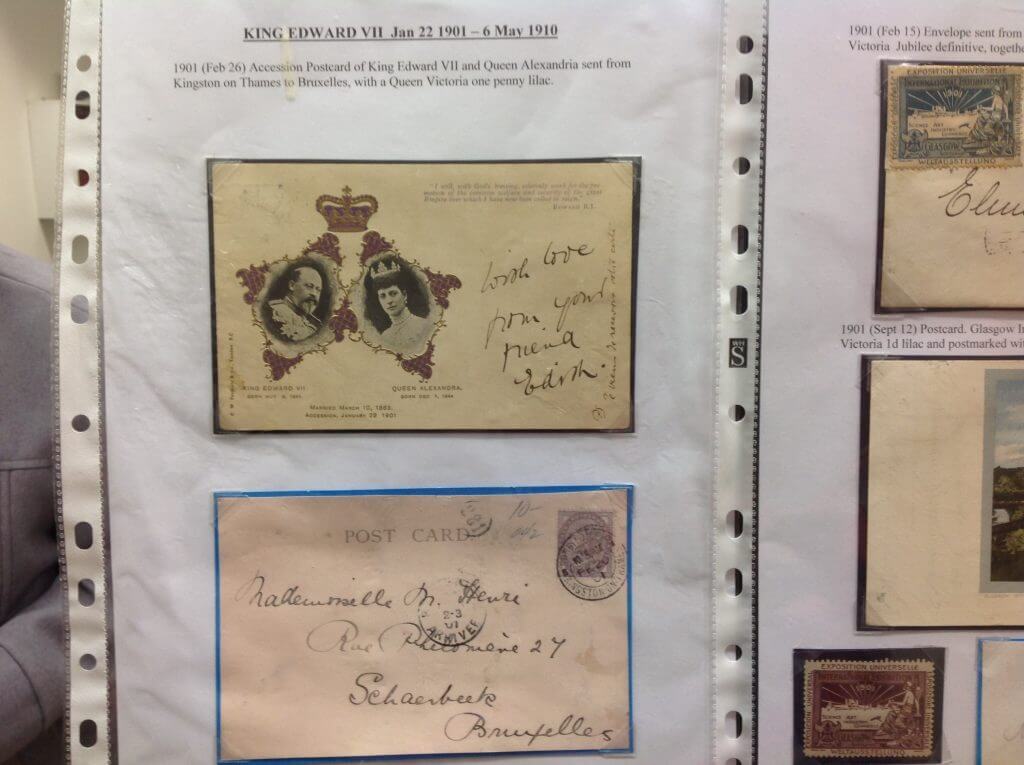 KING EDWARD VII Jan 22 1901 – 6 May 1910
1901 (Feb 26) Accession Postcard of King Edward VII and Queen Alexandria sent from
Kingston on Thames to Bruxelles, with a Queen Victoria one penny lilac.
"I will, with God's blessing, solemnly work for the pro-
motion of the common welfare and security of the great
Empire over which I have now been called to reign."
EDWARD R.I.
with love
from your
friend
Edith.
KING EDWARD VII
BORN NOV 9, 1841.
QUEEN ALEXANDRA.
BORN DEC 1, 1844
MARRIED MARCH 10, 1863.
ACCESSION, JANUARY 22 1901
POST CARD
Mademoiselle M. Henri
2-3
01
ARRIVEE
KINGSTON-ON-THAMES
Rue Philomène 27
Schaerbeek
Bruxelles
WH
S
1901 (Feb 15) Envelope sent from
Victoria Jubilee definitive, togethe
EXPOSITION UNIVERSELLE
INTERNATIONAL EXHIBITION
1901
SCIENCE ART
INDUSTRY
GLASGOW
WELTAUSSTELLUNG
1901 (Sept 12) Postcard. Glasgow In
Victoria 1d lilac and postmarked wit
EXPOSITION UNIVERSELLE
INTERNATIONAL EXHIBITION
1901
SCIENCE ART
GLASGOW
WELTAUSSTELLUNG